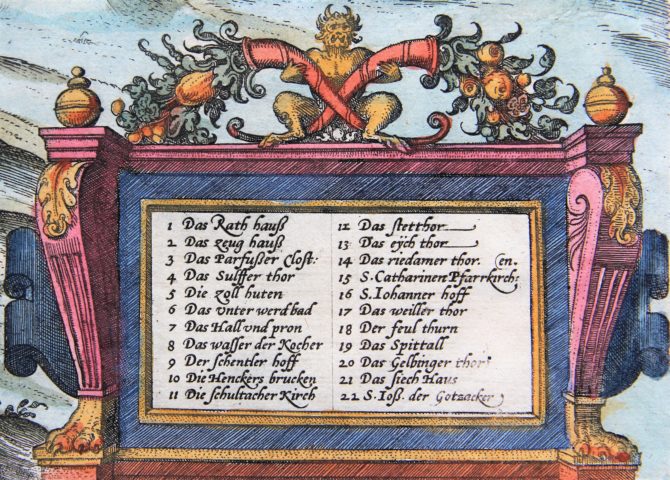 1 Das Rath hauß
2 Das zeug hauß
3 Das Parfußer Clost:
4 Das Sulffer thor
5 Die zoll huten
6 Das vnter werd bad
7 Das Hall vnd pron
8 Das wasser der Kocher
9 Der schentler hoff
10 Die Henckers brucken
11 Die schultacher Kirch
12 Das stetthor
13 Das eÿch thor
14 Das riedamer thor. en.
15 S. Catharinen Pfarrkirch
16 S. Iohanner hoff
17 Das weiller thor
18 Der feul thurn
19 Das Spittall
20 Das Gelbinger thor
21 Das siech Haus
22 S. Ioß. der Gotzacker